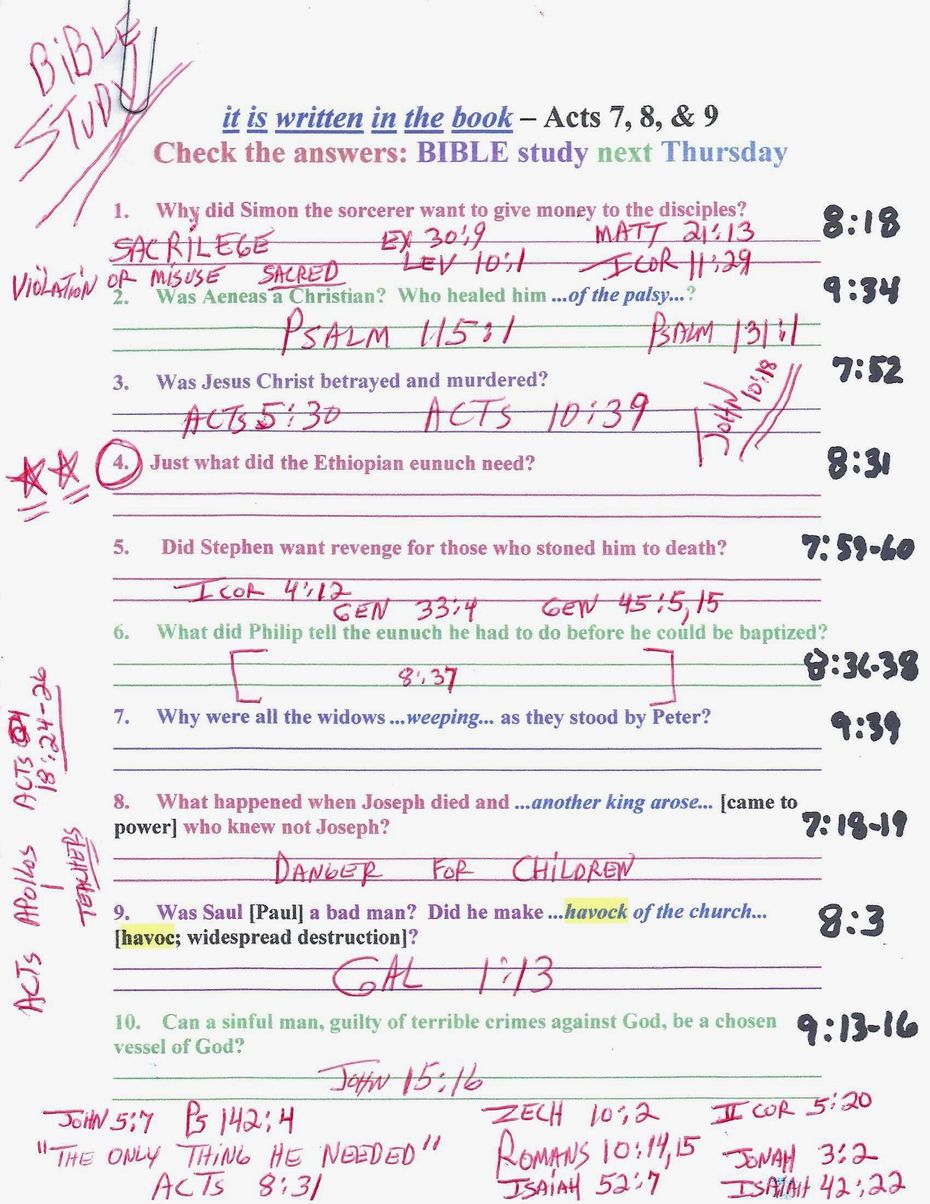 BIBLE
STUDY
it is written in the book – Acts 7, 8, & 9
Check the answers: BIBLE study next Thursday
1. Why did Simon the sorcerer want to give money to the disciples? 8:18
SACRILEGE EX 30:9 MATT 21:13
VIOLATION OR MISUSE SACRED LEV 10:1 I COR 11:29
2. Was Aeneas a Christian? Who healed him ...of the palsy...? 9:34
PSALM 115:1 PSALM 131:1
3. Was Jesus Christ betrayed and murdered? 7:52
ACTS 5:30 ACTS 10:39 JOHN 10:18
4. Just what did the Ethiopian eunuch need? 8:31
5. Did Stephen want revenge for those who stoned him to death? 7:59-60
I COR 4:12
GEN 33:4 GEN 45:5,15
6. What did Philip tell the eunuch he had to do before he could be baptized?
8:37 8:36-38
7. Why were all the widows ...weeping... as they stood by Peter? 9:39
8. What happened when Joseph died and ...another king arose... [came to
power] who knew not Joseph? 7:18-19
DANGER FOR CHILDREN
9. Was Saul [Paul] a bad man? Did he make ...havock of the church...
[havoc; widespread destruction]? 8:3
GAL 1:13
10. Can a sinful man, guilty of terrible crimes against God, be a chosen
vessel of God? 9:13-16
JOHN 15:16
ACTS APOLLOS ACTS
18:24-26
TEACHERS
JOHN 5:7 PS 142:4 ZECH 10:2 II COR 5:20
"THE ONLY THING HE NEEDED" ROMANS 10:14,15 JONAH 3:2
ACTS 8:31 ISAIAH 52:7 ISAIAH 42:22